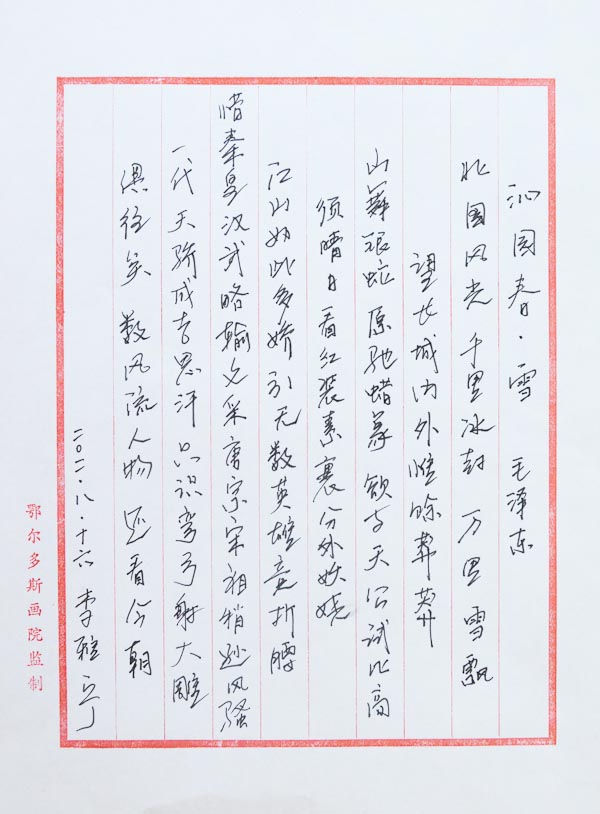 沁园春·雪 毛泽东
北国风光 千里冰封 万里雪飘
望长城内外惟馀莽莽
山舞银蛇 原驰蜡象 欲与天公试比高
须晴日看红装素裹分外妖娆
江山如此多娇引无数英雄竞折腰
惜秦皇汉武略输文采唐宗宋祖稍逊风骚
一代天骄成吉思汗只识弯弓射大雕
俱往矣 数风流人物 还看今朝
八·十六 李雅
鄂尔多斯画院监制